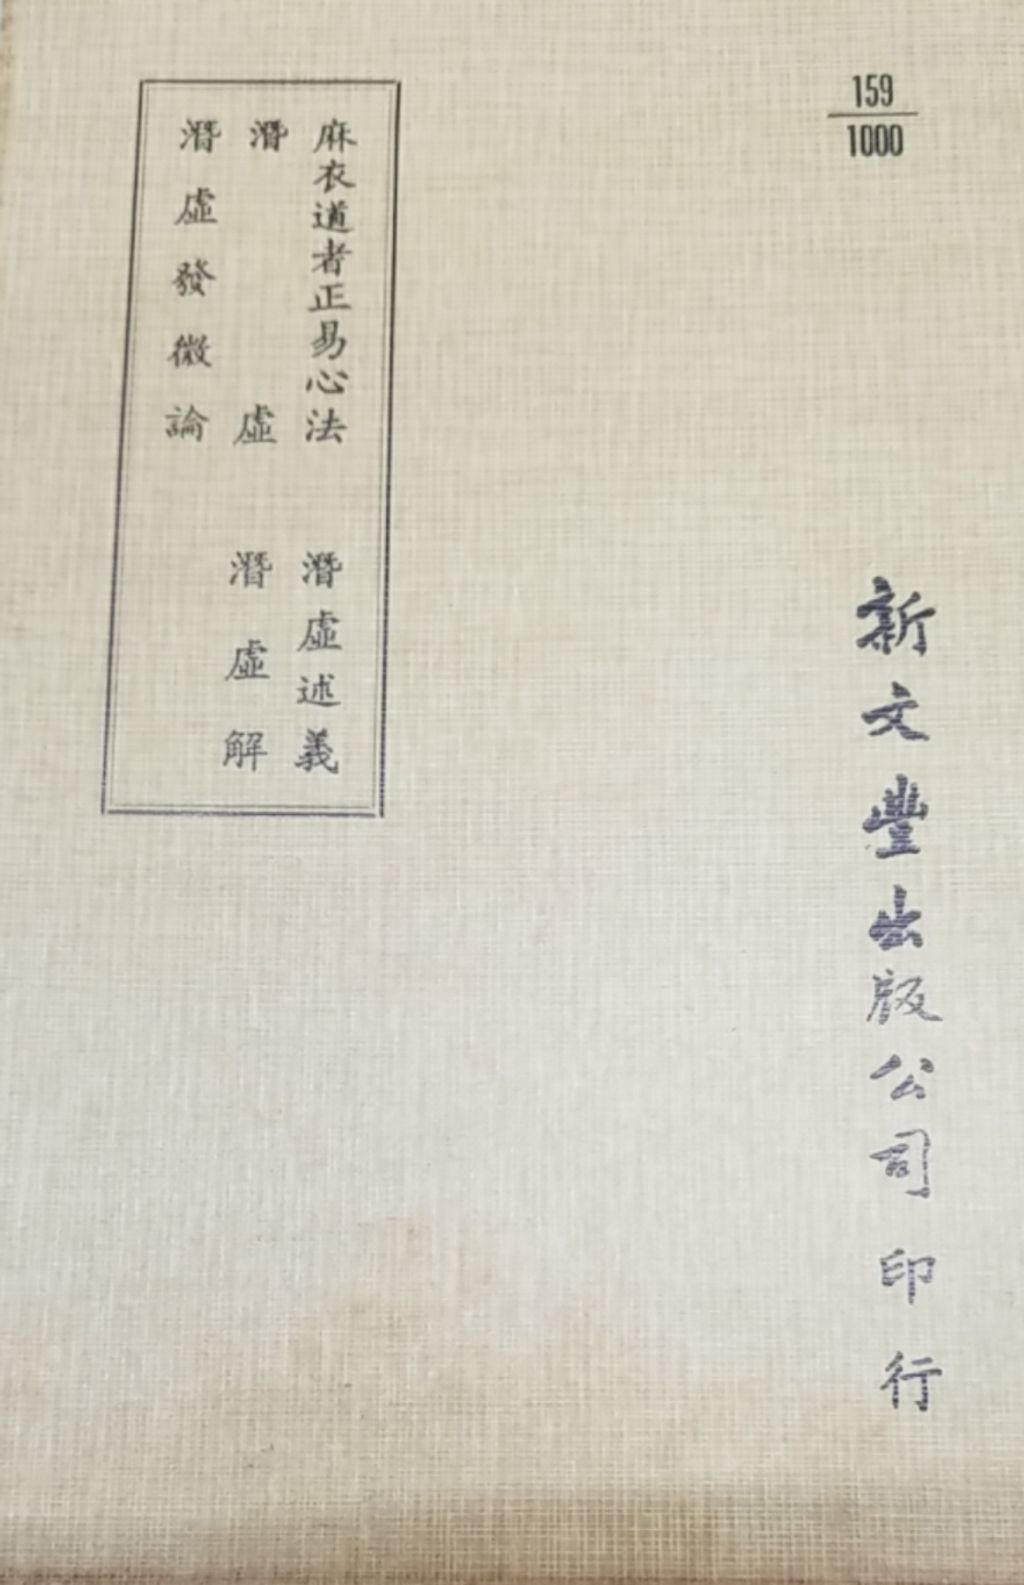 159
1000
麻衣道者正易心法 潛虛述義
潛虛 潛虛解
潛虛發微論
新文豐出版公司印行